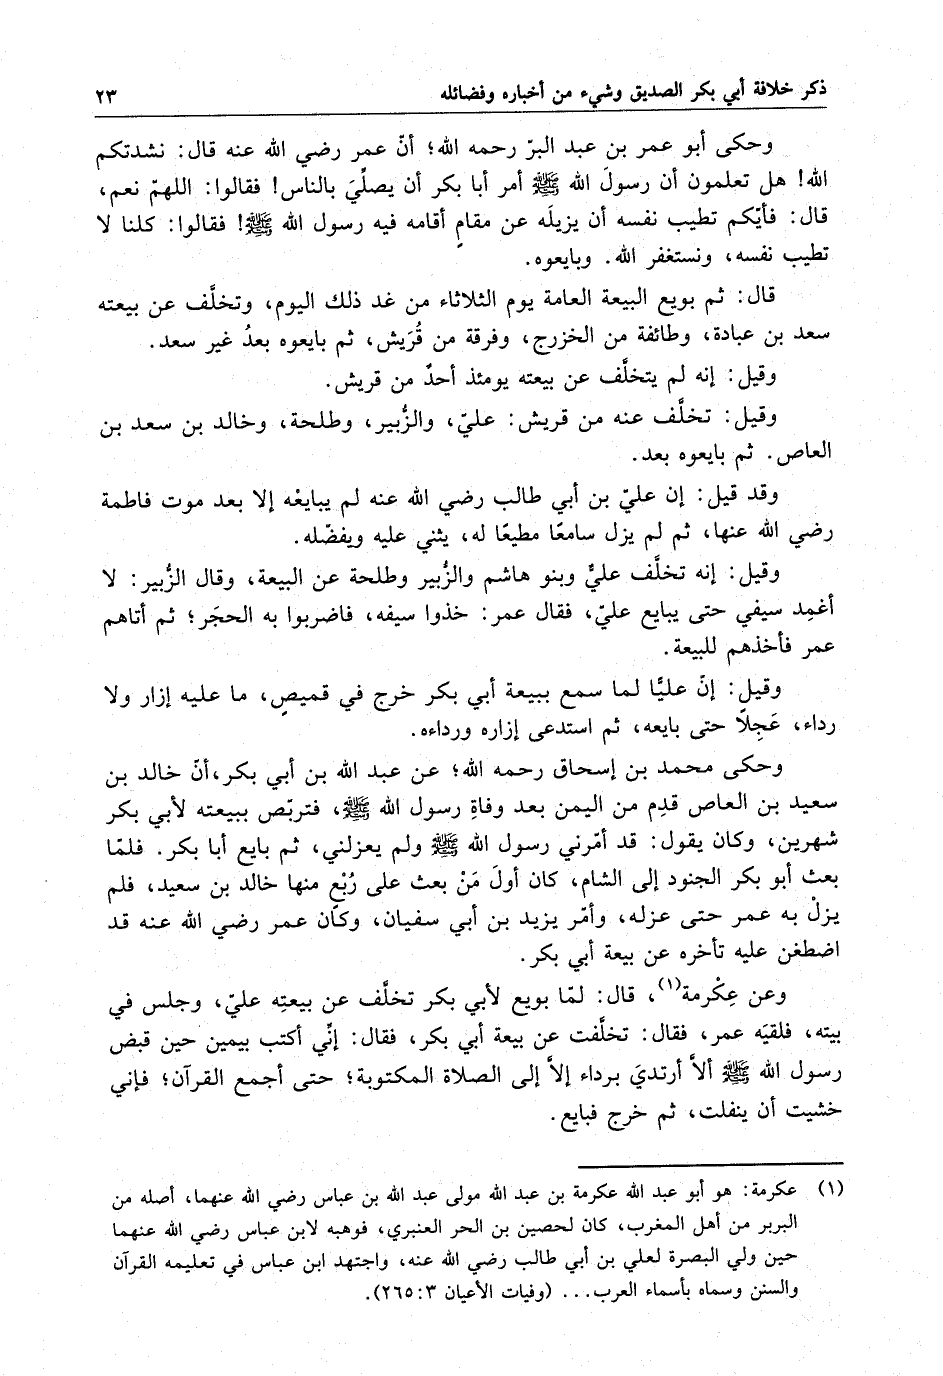 ذكر خلافة أبي بكر الصديق وشيء من أخباره وفضائله ٢٣
وحكى أبو عمر بن عبد البرّ رحمه الله؛ أنّ عمر رضي الله عنه قال: نشدتكم
الله! هل تعلمون أن رسولَ الله ﷺ أمر أبا بكر أن يصلِّيَ بالناس! فقالوا: اللهمّ نعم،
قال: فأيّكم تطيب نفسه أن يزيلَه عن مقامٍ أقامه فيه رسول الله ﷺ! فقالوا: كلنا لا
تطيب نفسه، ونستغفر الله. وبايعوه.
قال: ثم بويع البيعة العامة يوم الثلاثاء من غد ذلك اليوم، وتخلَّف عن بيعته
سعد بن عبادة، وطائفة من الخزرج، وفرقة من قُرَيش، ثم بايعوه بعدُ غير سعد.
وقيل: إنه لم يتخلَّف عن بيعته يومئذ أحدٌ من قريش.
وقيل: تخلَّف عنه من قريش: عليّ، والزُّبير، وطلحة، وخالد بن سعد بن
العاص. ثم بايعوه بعد.
وقد قيل: إن عليّ بن أبي طالب رضي الله عنه لم يبايعْه إلا بعد موت فاطمة
رضي الله عنها، ثم لم يزل سامعًا مطيعًا له، يثني عليه ويفضّله.
وقيل: إنه تخلَّف عليٌّ وبنو هاشم والزُّبير وطلحة عن البيعة، وقال الزُّبير: لا
أغمِد سيفي حتى يبايع عليّ، فقال عمر: خذوا سيفه، فاضربوا به الحجَر؛ ثم أتاهم
عمر فأخذهم للبيعة.
وقيل: إنّ عليًّا لما سمع ببيعة أبي بكر خرج في قميصٍ، ما عليه إزار ولا
رداء، عَجِلًا حتى بايعه، ثم استدعى إزاره ورداءه.
وحكى محمد بن إسحاق رحمه الله؛ عن عبد الله بن أبي بكر، أنّ خالد بن
سعيد بن العاص قدِم من اليمن بعد وفاةِ رسول الله ﷺ، فتربّص ببيعته لأبي بكر
شهرين، وكان يقول: قد أمّرني رسول الله ﷺ ولم يعزلني، ثم بايع أبا بكر. فلمّا
بعث أبو بكر الجنود إلى الشام، كان أولَ مَنْ بعث على رُبْعٍ منها خالد بن سعيد، فلم
يزلْ به عمر حتى عزله، وأمّر يزيد بن أبي سفيان، وكان عمر رضي الله عنه قد
اضطغن عليه تأخره عن بيعة أبي بكر.
وعن عِكْرمة(١)، قال: لمّا بويع لأبي بكر تخلَّف عن بيعتِه عليّ، وجلس في
بيته، فلقيَه عمر، فقال: تخلَّفت عن بيعة أبي بكر، فقال: إنِّي أكتب بيمين حين قبض
رسول الله ﷺ ألاَّ أرتديَ برداء إلاَّ إلى الصلاة المكتوبة؛ حتى أجمع القرآن؛ فإني
خشيت أن ينفلت، ثم خرج فبايع.
(١) عكرمة: هو أبو عبد الله عكرمة بن عبد الله مولى عبد الله بن عباس رضي الله عنهما، أصله من
البربر من أهل المغرب، كان لحصين بن الحر العنبري، فوهبه لابن عباس رضي الله عنهما
حين ولي البصرة لعلي بن أبي طالب رضي الله عنه، واجتهد ابن عباس في تعليمه القرآن
والسنن وسماه بأسماء العرب... (وفيات الأعيان ٣: ٢٦٥).